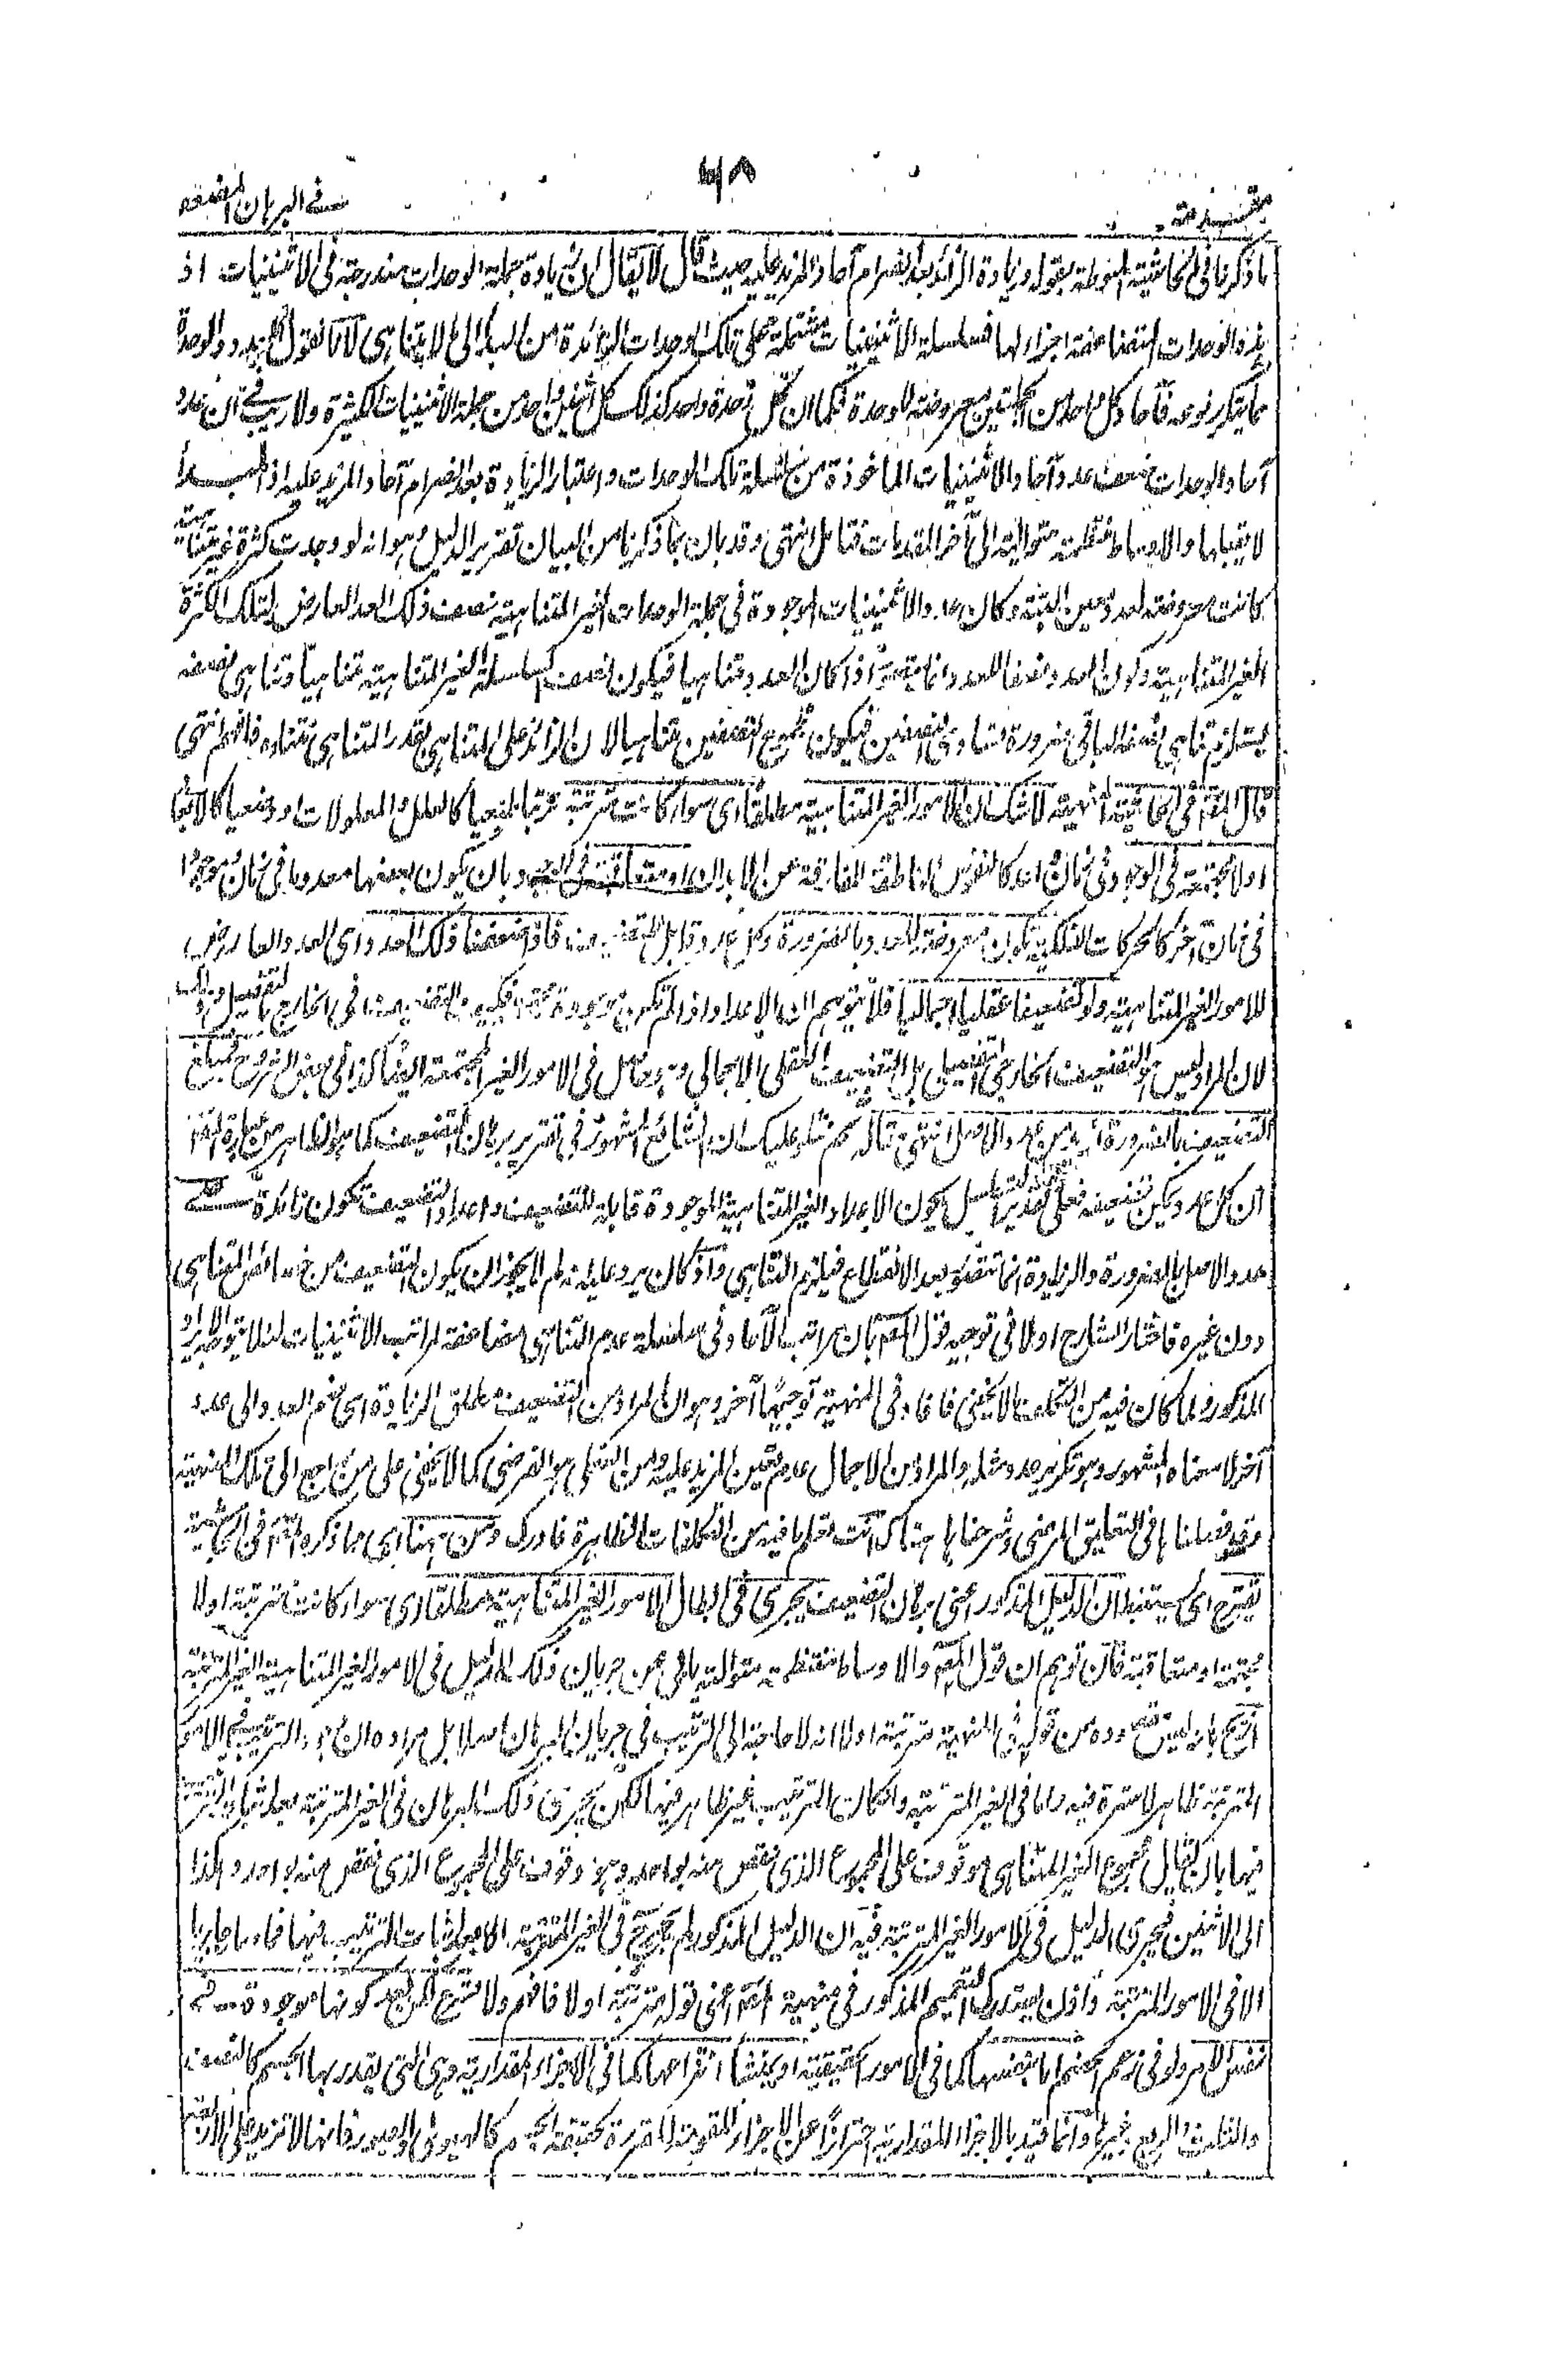 مقدمة
٦٨
في البرهان المضعف
ما ذكرنا في الحاشية المنوطة بقوله وزيادة الزائد بعد انصرام آحاد المزيد عليه حيث قال لا يقال ان زيادة جملة الوحدات مندرجة في الاثنينيات اذ
هذه الوحدات المتضاعفة اجزاء لها فسلسلة الاثنينيات مشتملة على تلك الوحدات الزائدة من المبدأ الى ما لا يتناهى لانا نقول العدد والوحدة
مما يتكرر نوعه فآحاد كل واحد من الجملتين معروضة للوحدة فكما ان لكل وحدة واحد كذلك كل اثنين واحد من جملة الاثنينيات الكثيرة ولا ريب في ان عدد
آحاد الوحدات ضعف عدد آحاد الاثنينيات الماخوذة من سلسلة تلك الوحدات واعتبار الزيادة بعد انصرام آحاد المزيد عليه اذ المبدأ
لا يقبلها والاوساط منتظمة متوالية الى آخر المقدمات فتامل انتهى وقد بان بما ذكرنا من البيان تقرير الدليل وهو انه لو وجدت كثرة غير متناهية
كانت معروضة لعدد معين البتة وكان عدد الاثنينيات الموجودة في جملة الوحدات الغير المتناهية نصف ذلك العدد العارض لتلك الكثرة
الغير المتناهية وكون العدد نصفا لعدد انما يتصور اذا كان العدد متناهيا فيكون نصف السلسلة الغير المتناهية متناهيا وتناهي نصفه
يستلزم تناهي نصفه الباقي ضرورة تساوي النصفين فيكون مجموع النصفين متناهيا لان الزائد على المتناهي بقدر المتناهي متناه فافهم انتهى
قال المصنف في الحاشية المنهية لا شك ان الامور الغير المتناهية مطلقا اي سواء كانت مرتبة ترتبا طبعيا كالعلل والمعلولات او وضعيا كالابعاد
اولا مجتمعة في الوجود في زمان واحد كالنفوس الناطقة المفارقة عن الابدان او متعاقبة في الوجود بان يكون بعضها معدوما في زمان موجودا
في زمان آخر كالحركات الفلكية تكون معروضة للعدد بالضرورة وكل عدد قابل للتضعيف فاذا ضعفنا ذلك العدد اي العدد العارض
للامور الغير المتناهية ولو تضعيفا عقليا اجماليا فلا يتوهم ان الاعداد اذا لم تكن موجودة مجتمعة فكيف التضعيف في الخارج بالتفصيل وذلك
لان المراد ليس هو التضعيف الخارجي التفصيلي بل التضعيف العقلي الاجمالي وهو حاصل في الامور الغير المجتمعة ايضا كذا في بعض الشروح فمبلغ
التضعيف بالضرورة ازيد من عدد الاصل انتهى قال ثم نتلو عليك ان الشائع المشهور في تقرير برهان التضعيف كما هو الظاهر من عبارة المصنف
ان كل عدد يمكن تضعيفه فعلى تقدير التسلسل يكون الاعداد الغير المتناهية الموجودة قابلة للتضعيف واعداد التضعيف تكون زائدة على
عدد الاصل بالضرورة والزيادة انما تتصور بعد الانقطاع فيلزم التناهي واذ كان يرد عليه انه لم لا يجوز ان يكون التضعيف من خصائص المتناهي
دون غيره فاختار الشارح اولا في توجيه قول المصنف بان مراتب الآحاد في سلسلة عدم التناهي مضاعفة لمراتب الاثنينيات لئلا يتوجه الايراد
المذكور ولما كان فيه من التكلف ما لا يخفى فافاد في المنهية توجيها آخر وهو ان المراد من التضعيف مطلق الزيادة اي ضم العدد الى عدد
آخر لا معناه المشهور وهو تكرير عدد مثله والمراد من الاجمال عدم تعين المزيد عليه ومن العقلي هو الفرضي كما لا يخفى على من راجع الى تلك المنهية
وقد فصلنا ها في التعليق المرضي وشرحناها هناك انت تعلم ما فيه من التكلفات الظاهرة فادرك ومن ههنا اي مما ذكره المصنف في الحاشية
يتضح اي يستنبط ان الدليل المذكور اعني برهان التضعيف يجري في ابطال الامور الغير المتناهية مطلقا اي سواء كانت مترتبة اولا
مجتمعة او متعاقبة فان توهم ان قول المصنف والاوساط منتظمة متوالية يابى عن جريان ذلك الدليل في الامور الغير المتناهية الغير المترتبة
ازيح بانه ليس مقصوده من قوله في المنهية مترتبة اولا انه لا حاجة الى الترتيب في جريان البرهان اصلا بل مراده ان وجود الترتيب في الامور
المترتبة ظاهر لا سترة فيه واما في الغير المترتبة وان كان الترتيب غير ظاهر فيها لكن يجري ذلك البرهان في الغير المترتبة بعد اثبات الترتيب
فيها بان يقال مجموع الغير المتناهي موقوف على المجموع الذي نقص منه بواحد وهو موقوف على المجموع الذي نقص منه بواحد وهكذا
الى الاثنين فيجري الدليل في الامور الغير المترتبة ففيه ان الدليل المذكور لم يجر ح في الغير المترتبة الا بعد اثبات الترتيب فيها فما جرياها
الا في الامور المترتبة واذن يستدرك التعميم المذكور في منهية المصنف اعني قوله مترتبة اولا فافهم ولا تسرع لكن بعد كونها موجودة في
نفس الامر ولو في زعم الخصم اما بنفسها كما في الامور الحقيقية او بمنشأ انتزاعها كما في الاجزاء المقدارية وهي التي يقدر بها الجسم كالنصف
والثلث والربع وغيرها وانما قيد بالاجزاء المقدارية احترازا عن الاجزاء المقومة المقررة لحقيقة الجسم كالهيولى والصورة فانها لا تزيد على الاثنين